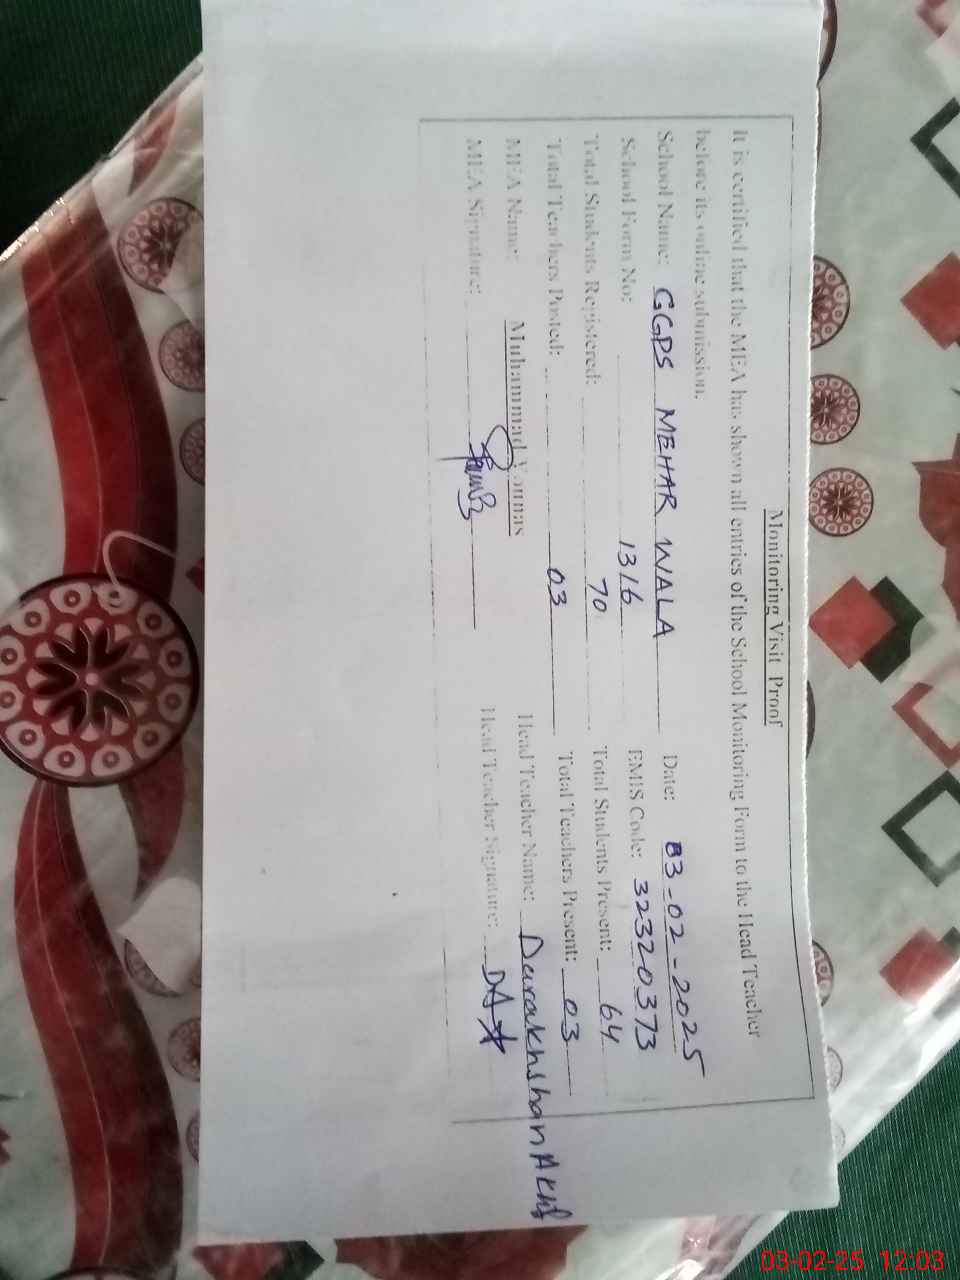 Monitoring Visit Proof
It is certified that the MEA has shown all entries of the School Monitoring Form to the Head Teacher
before its online submission.
School Name: GGPS MEHAR WALA Date: 03-02-2025
School Form No: 1316 EMIS Code: 32320373
Total Students Registered: 70 Total Students Present: 64
Total Teachers Posted: 03 Total Teachers Present: 03
MEA Name: Muhammad Younas Head Teacher Name: Darakhshan
MEA Signature: Head Teacher Signature: DA
03-02-25 12:03